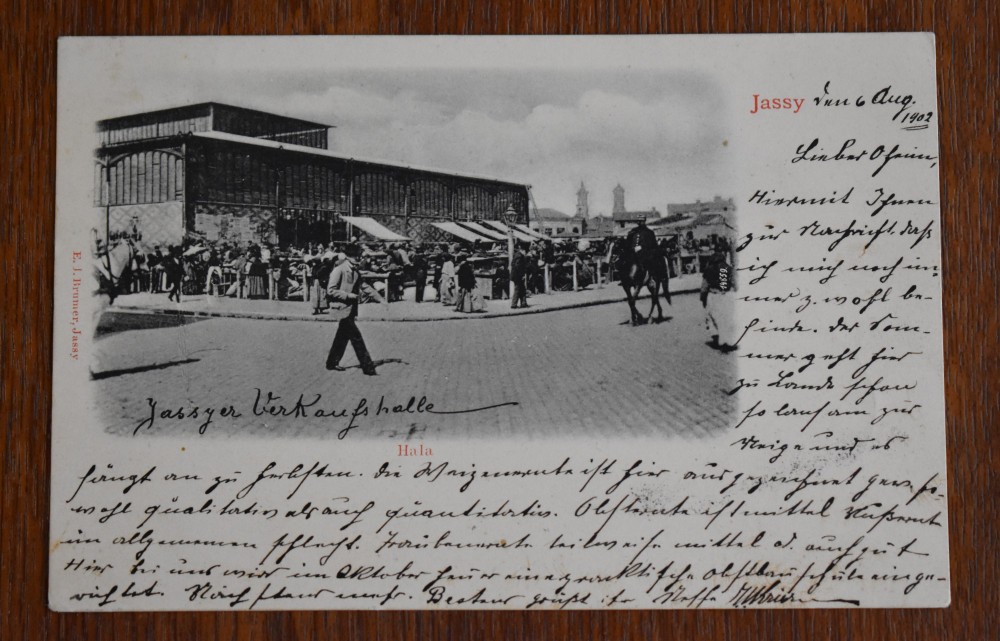 Jassy den 6 Aug.
1902
Lieber Oheim,
Hiermit Ihnen
zur Nachricht daß
ich mich noch im-
mer z. wohl be-
finde. Der Som-
mer geht hier
zu Lande schon
so langsam zur
Neige und es
E. J. Brumer, Jassy
Jassyer Verkaufshalle
Hala
fängt an zu herbsten. Die Weizenernte ist hier ausgezeichnet gew. so-
wohl qualitativ als auch quantitativ. Obsternte ist mittel
im allgemeinen schlecht. Traubenernte teilweise mittel a. auch gut
Hier bei uns wird im Oktober heuer eine praktische Obstbauschule einge-
richtet. Nächstens mehr. Bestens grüßt Ihr Neffe